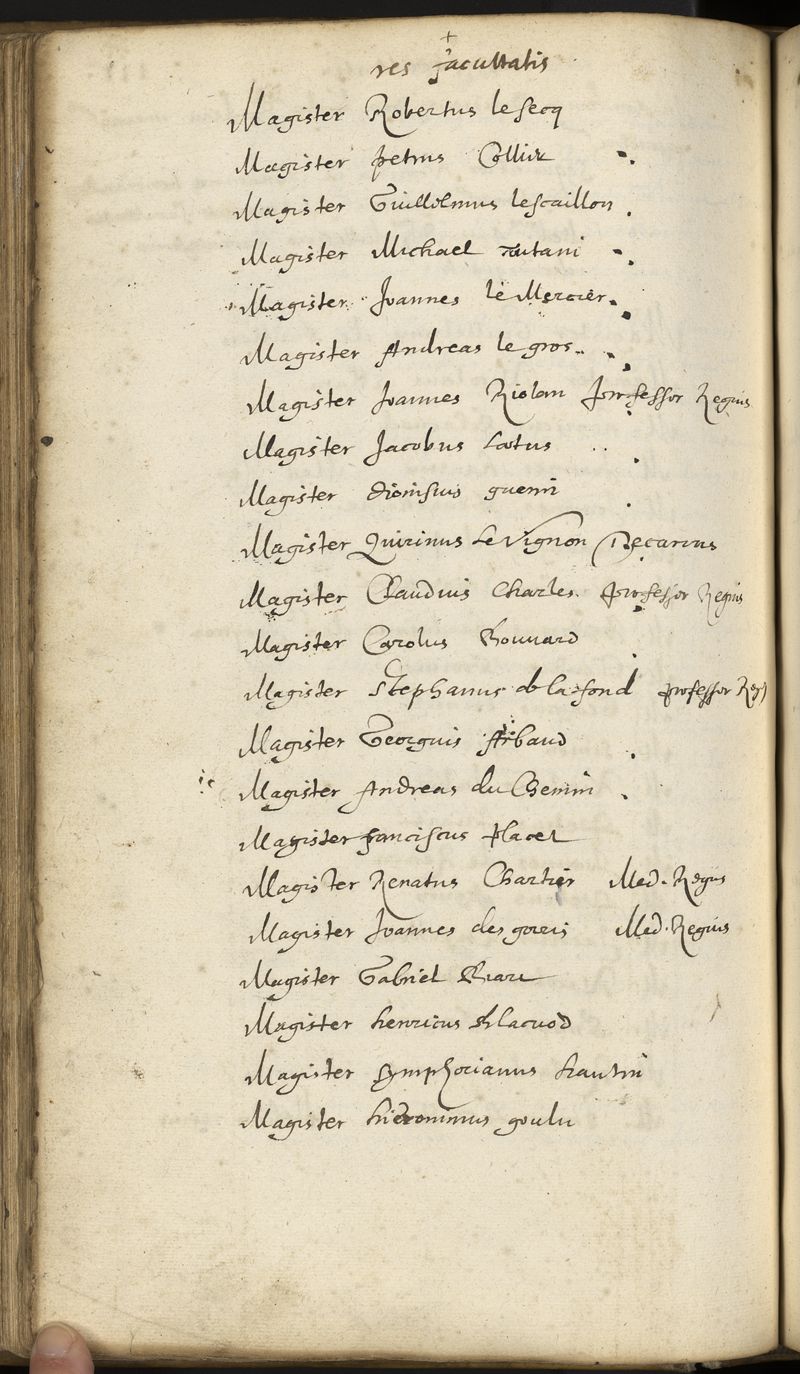 res facultatis
Magister Robertus le secq
Magister petrus Collier
Magister Guillelmus lescaillon
Magister Michael
Magister Joannes le Mercier
Magister Andreas le gros
Magister Joannes Riolan professor Regius
Magister Jacobus Lætus
Magister dionisius guerin
Magister Quirinus Le Vignon Decanus
Magister Claudius Charles professor Regius
Magister Carolus Bouvard
Magister Stephanus de la fond professor Reg
Magister Georgius Arbaud
Magister Andreas du Chemin
Magister franciscus placet
Magister Renatus Chartier Med. Regius
Magister Joannes des gorris Med. Regius
Magister Gabriel
Magister henricus Blacuod
Magister Symphorianus hautin
Magister hieronimus goulu